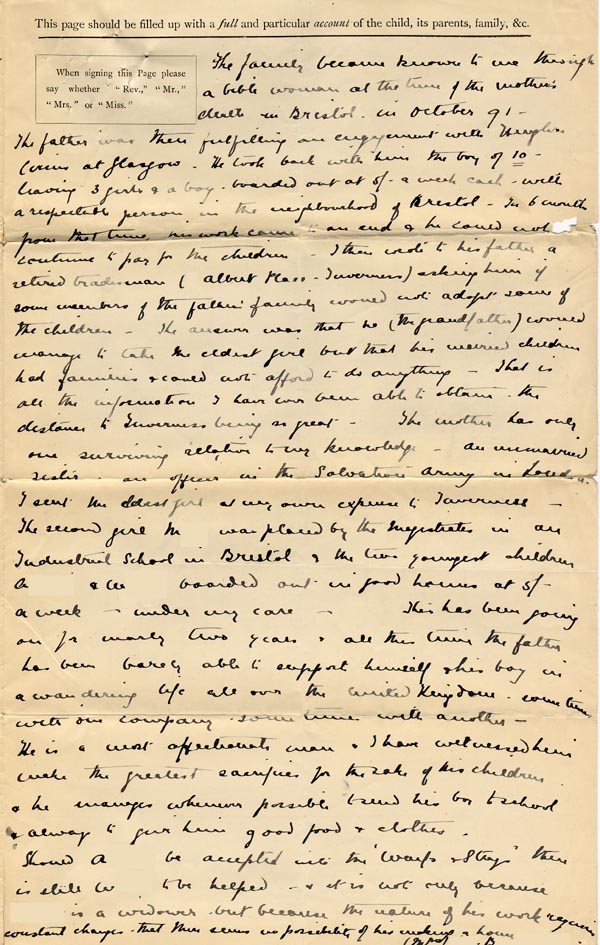 This page should be filled up with a full and particular account of the child, its parents, family, &c.
When signing this Page please
say whether "Rev.," "Mr.,"
"Mrs." or "Miss."
The family became known to me through
a bible woman at the time of the mother's
death in Bristol in October 91 -
The father was then fulfilling an engagement with Hengler
Circus at Glasgow - He took back with him the boy of 10 -
leaving 3 girls & a boy boarded out at 5/- a week each - with
a respectable person in the neighbourhood of Bristol - In 6 months
from that time, his work came to an end & he could not
continue to pay for the children - I then wrote to his father a
retired tradesman ( Albert Place - Inverness) asking him if
some members of the father's family would not adopt some of
the children - The answer was that he (the grandfather) would
manage to take the eldest girl but that his married children
had families & could not afford to do anything - That is
all the information I have ever been able to obtain - the
distance to Inverness being so great - The mother has only
one surviving relation to my knowledge - an unmarried
sister - an officer in the Salvation Army in London
I sent the eldest girl at my own expense to Inverness -
The second girl M was placed by the Magistrates in an
Industrial School in Bristol & the two youngest children
A & W boarded out in good homes at 5/-
a week - under my care - This has been going
on for nearly two years & all this time the father
has been barely able to support himself & his boy in
a wandering life all over the United Kingdom - sometimes
with one company sometimes with another -
He is a most affectionate man & I have witnessed him
make the greatest sacrifices for the sake of his children
& he manages whenever possible to send his boy to school
& always to give him good food & clothes.
Should A be accepted into the "Waifs & Strays" there
is still W to be helped - & it is not only because
is a widower but because the nature of his work requires
constant changes - that there seems no possibility of his making a home